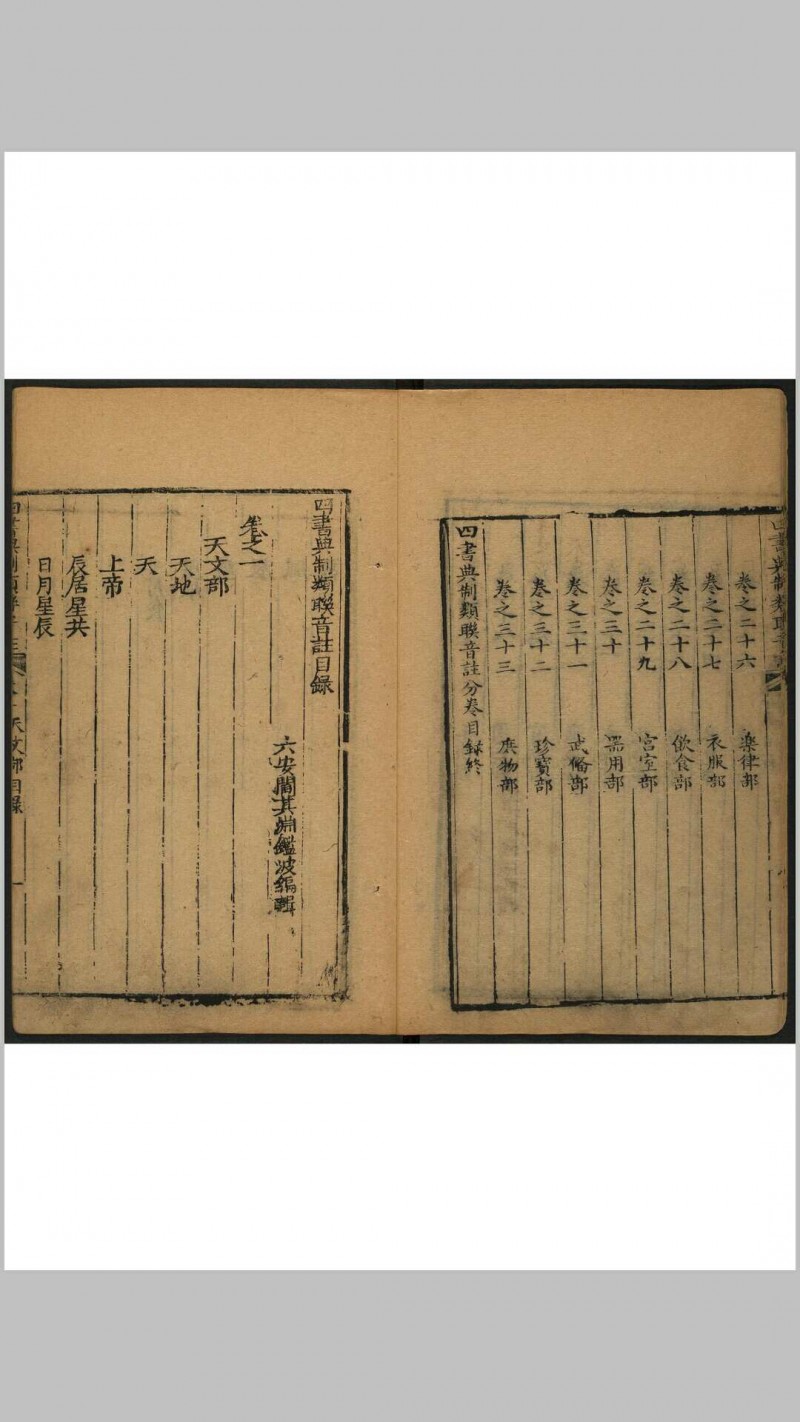 四書典制類聯音註
卷之二十六 樂律部
卷之二十七 衣服部
卷之二十八 飲食部
卷之二十九 宮室部
卷之三十 器用部
卷之三十一 武備部
卷之三十二 珍寶部
卷之三十三 庶物部
四書典制類聯音註分卷目録終
四書典制類聯音註目錄
六安閻其淵鑑波編輯
卷之一
天文部
天地
天
上帝
辰居星共
日月星辰
四書典制類聯音註 卷一 天文部目錄 一